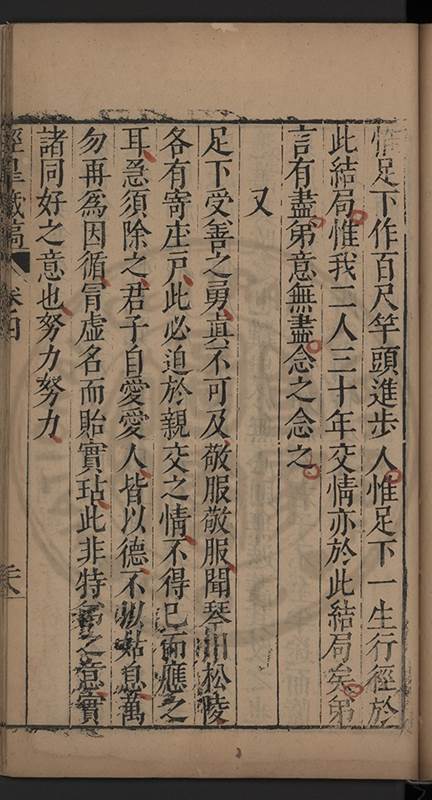 惟足下作百尺竿頭進步人惟足下一生行徑於
此結局惟我二人三十年交情亦於此結局矣弟
言有盡弟意無盡念之念之
又
足下受善之勇真不可及敬服敬服聞琴川松陵
各有寄庄戸此必迫於親交之情不得已而應之
耳急須除之君子自愛愛人皆以德不以姑息萬
勿再為因循冐虛名而貽實玷此非特弟之意實
諸同好之意也努力努力
卷四